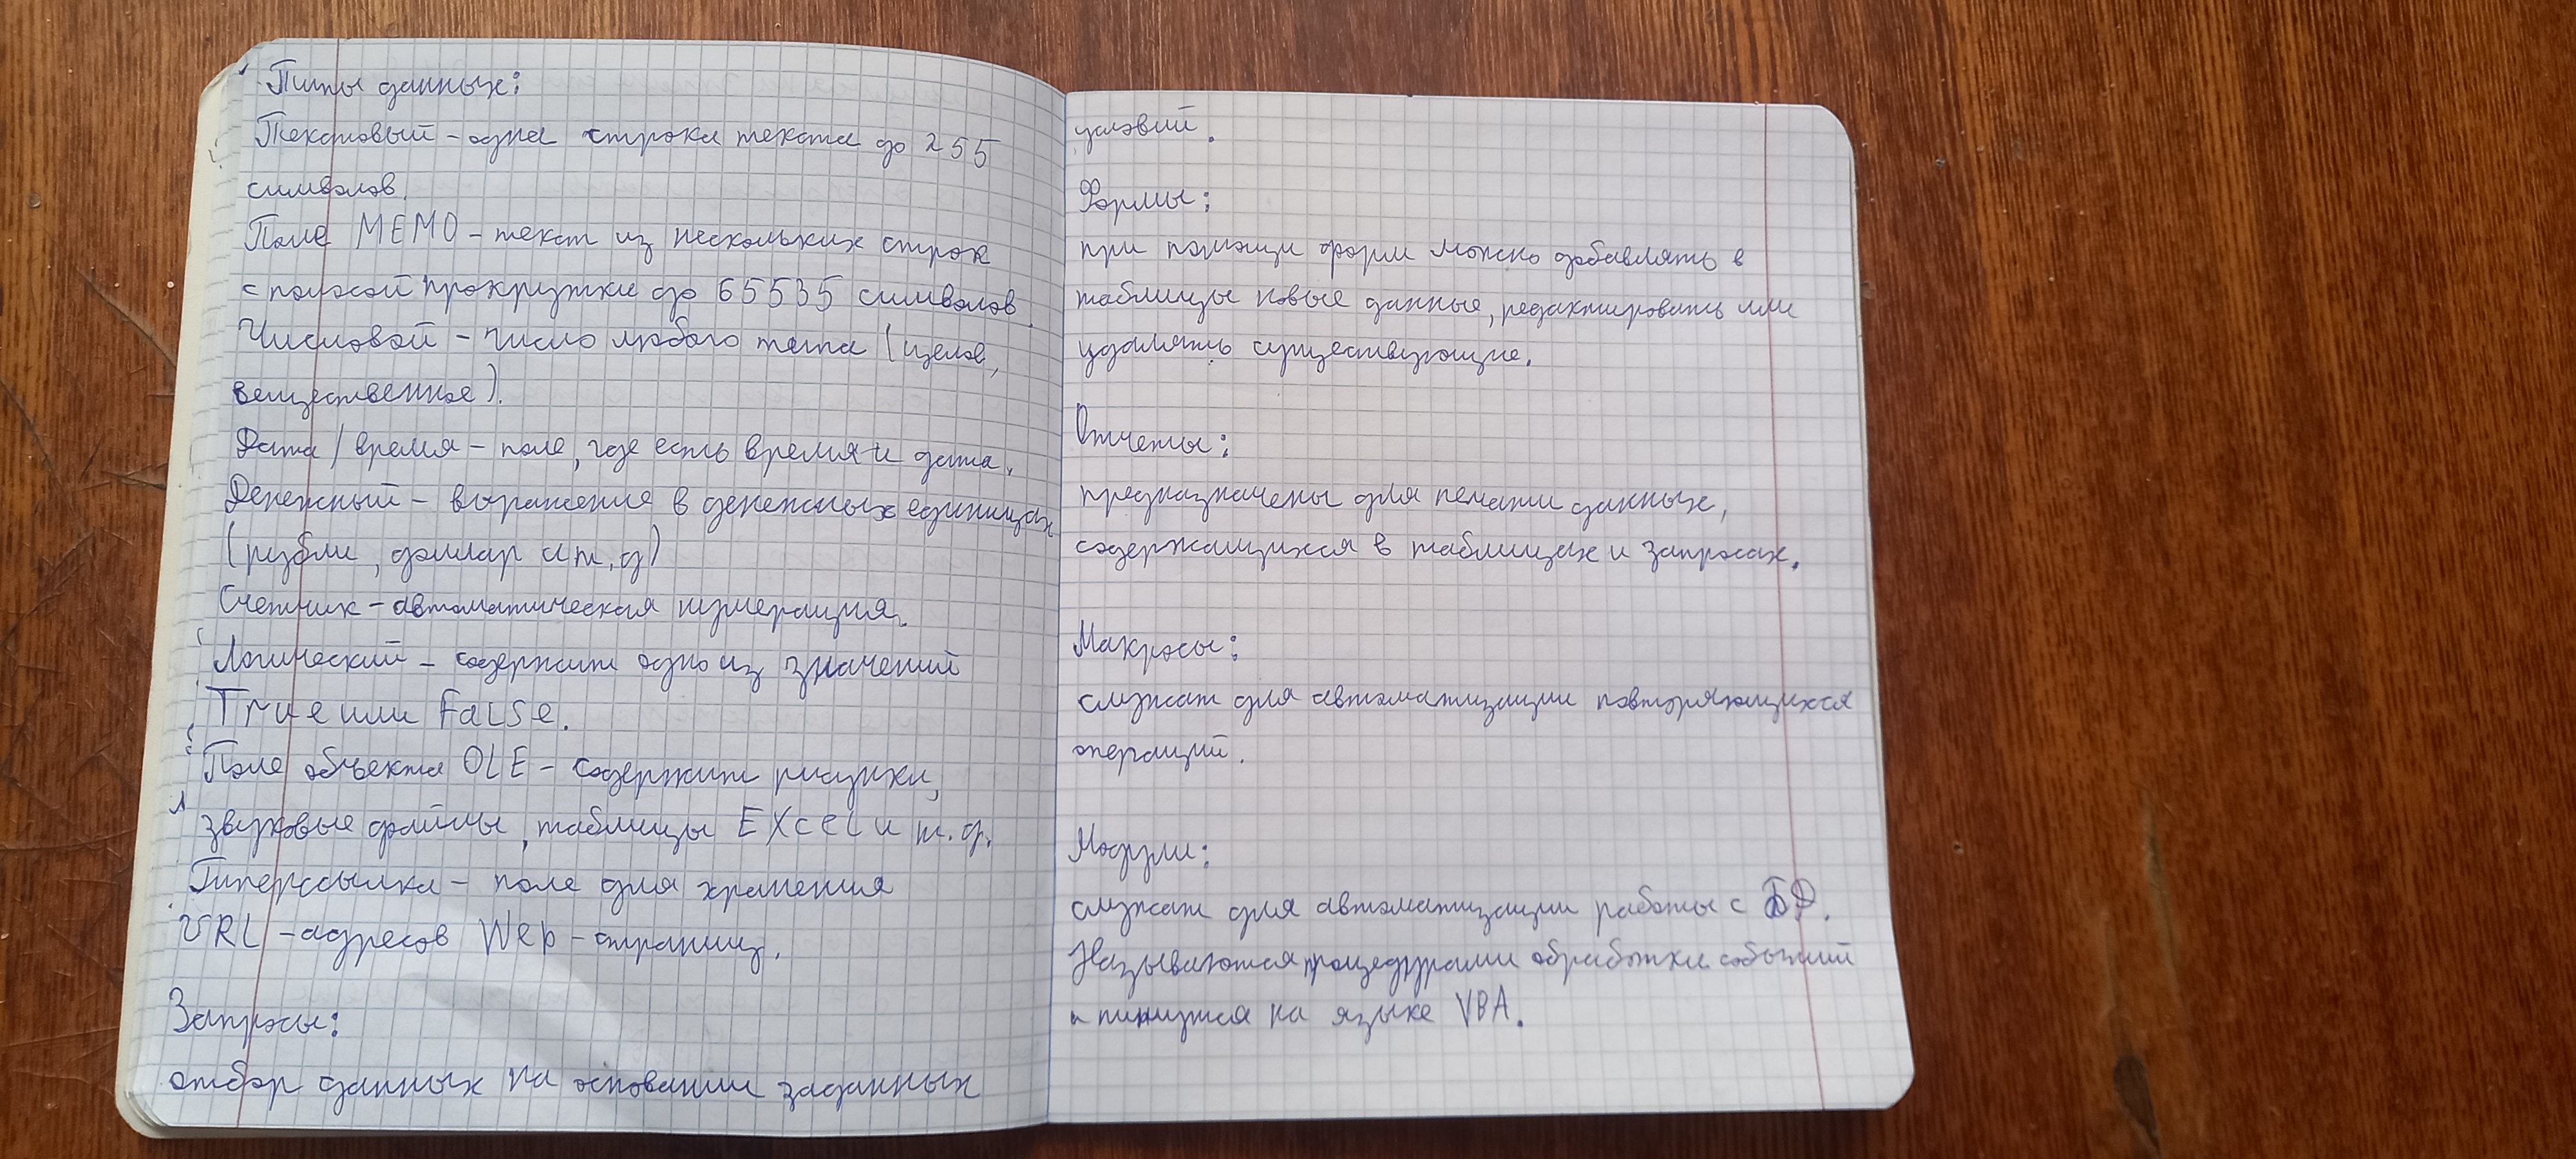 Типы данных:
Текстовый - одна строка текста до 255
символов.
Поле МЕМО - текст из нескольких строк
с полосой прокрутки до 65535 символов.
Числовой - число любого типа (целое,
вещественное).
Дата / время - поле, где есть время и дата.
Денежный - выражение в денежных единицах
(рубли, доллар и т.д)
Счетчик - автоматическая нумерация.
Логический - содержит одно из значений
True или False.
Поле объекта OLE - содержит рисунки,
звуковые файлы, таблицы Excel и т.д.
Гиперссылка - поле для хранения
URL - адресов Web - страниц.
Запросы:
отбор данных на основании заданных
условий.
Формы:
при помощи форм можно добавлять в
таблицы новые данные, редактировать или
удалять существующие.
Отчеты:
предназначены для печати данных,
содержащихся в таблицах и запросах.
Макросы:
служат для автоматизации повторяющихся
операций.
Модули:
служат для автоматизации работы с БД.
Называются процедурами обработки событий
и пишутся на языке VBA.